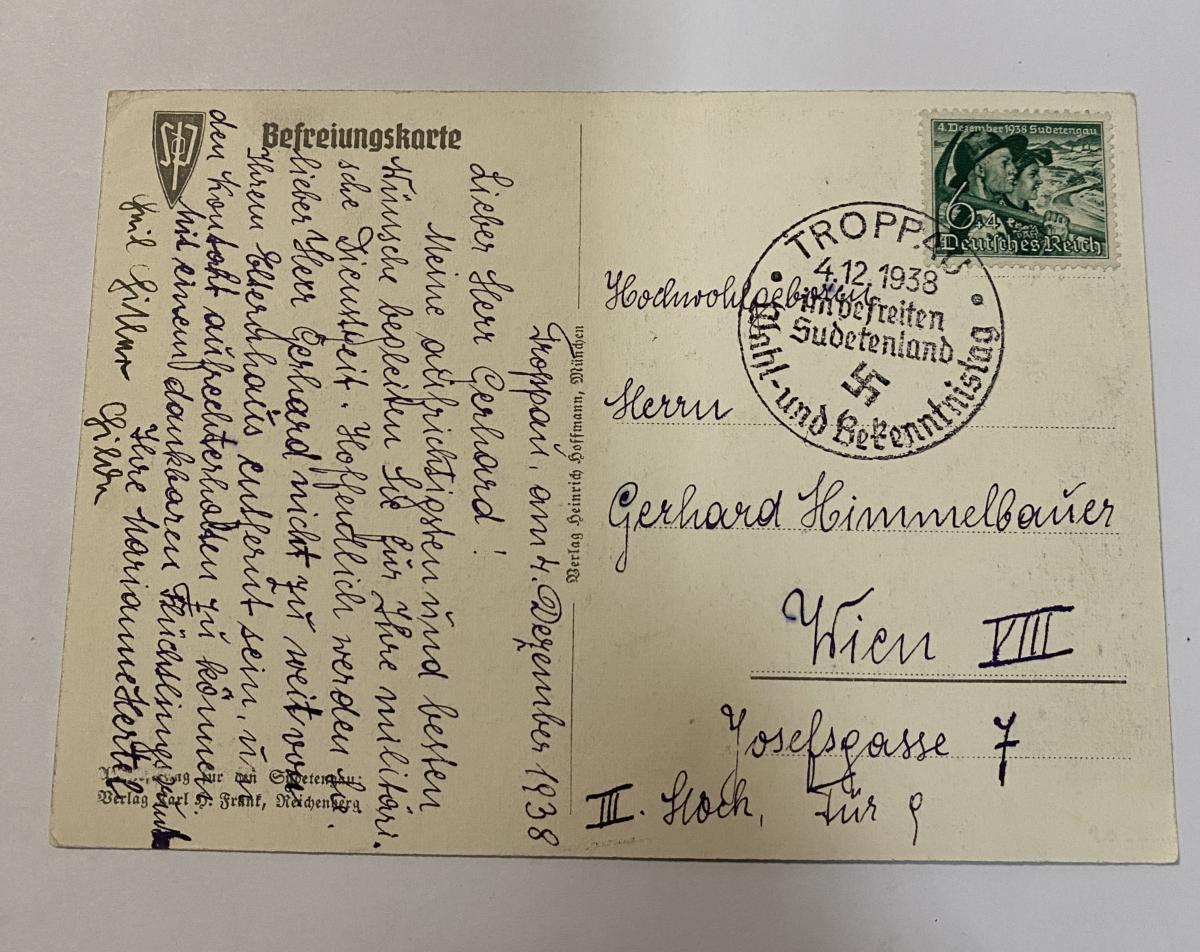 SdP
Befreiungskarte
Troppau, am 4. Dezember 1938
Lieber Herr Gerhard!
Meine aufrichtigsten und besten
Wünsche begleiten Sie für Ihre militäri-
sche Dienstzeit. Hoffendlich werden Sie
lieber Herr Gerhard nicht zu weit von
Ihrem Elternhaus entfernt sein, um
den Kontakt aufrechterhalten zu können
Mit einem dankbaren
Ihre Marianne Hertel
Verlag Heinrich Hoffmann, München
für den Sudetengau:
Verlag Karl H. Frank, Reichenberg
4. Dezember 1938 Sudetengau
6+4
Deutsches Reich
TROPPAU
4.12.1938
im befreiten
Sudetenland
Wahl- und Bekenntnistag
Hochwohlgeboren
Herrn
Gerhard Himmelbauer
Wien VIII
Josefsgasse 7
III. Stock, Tür 9